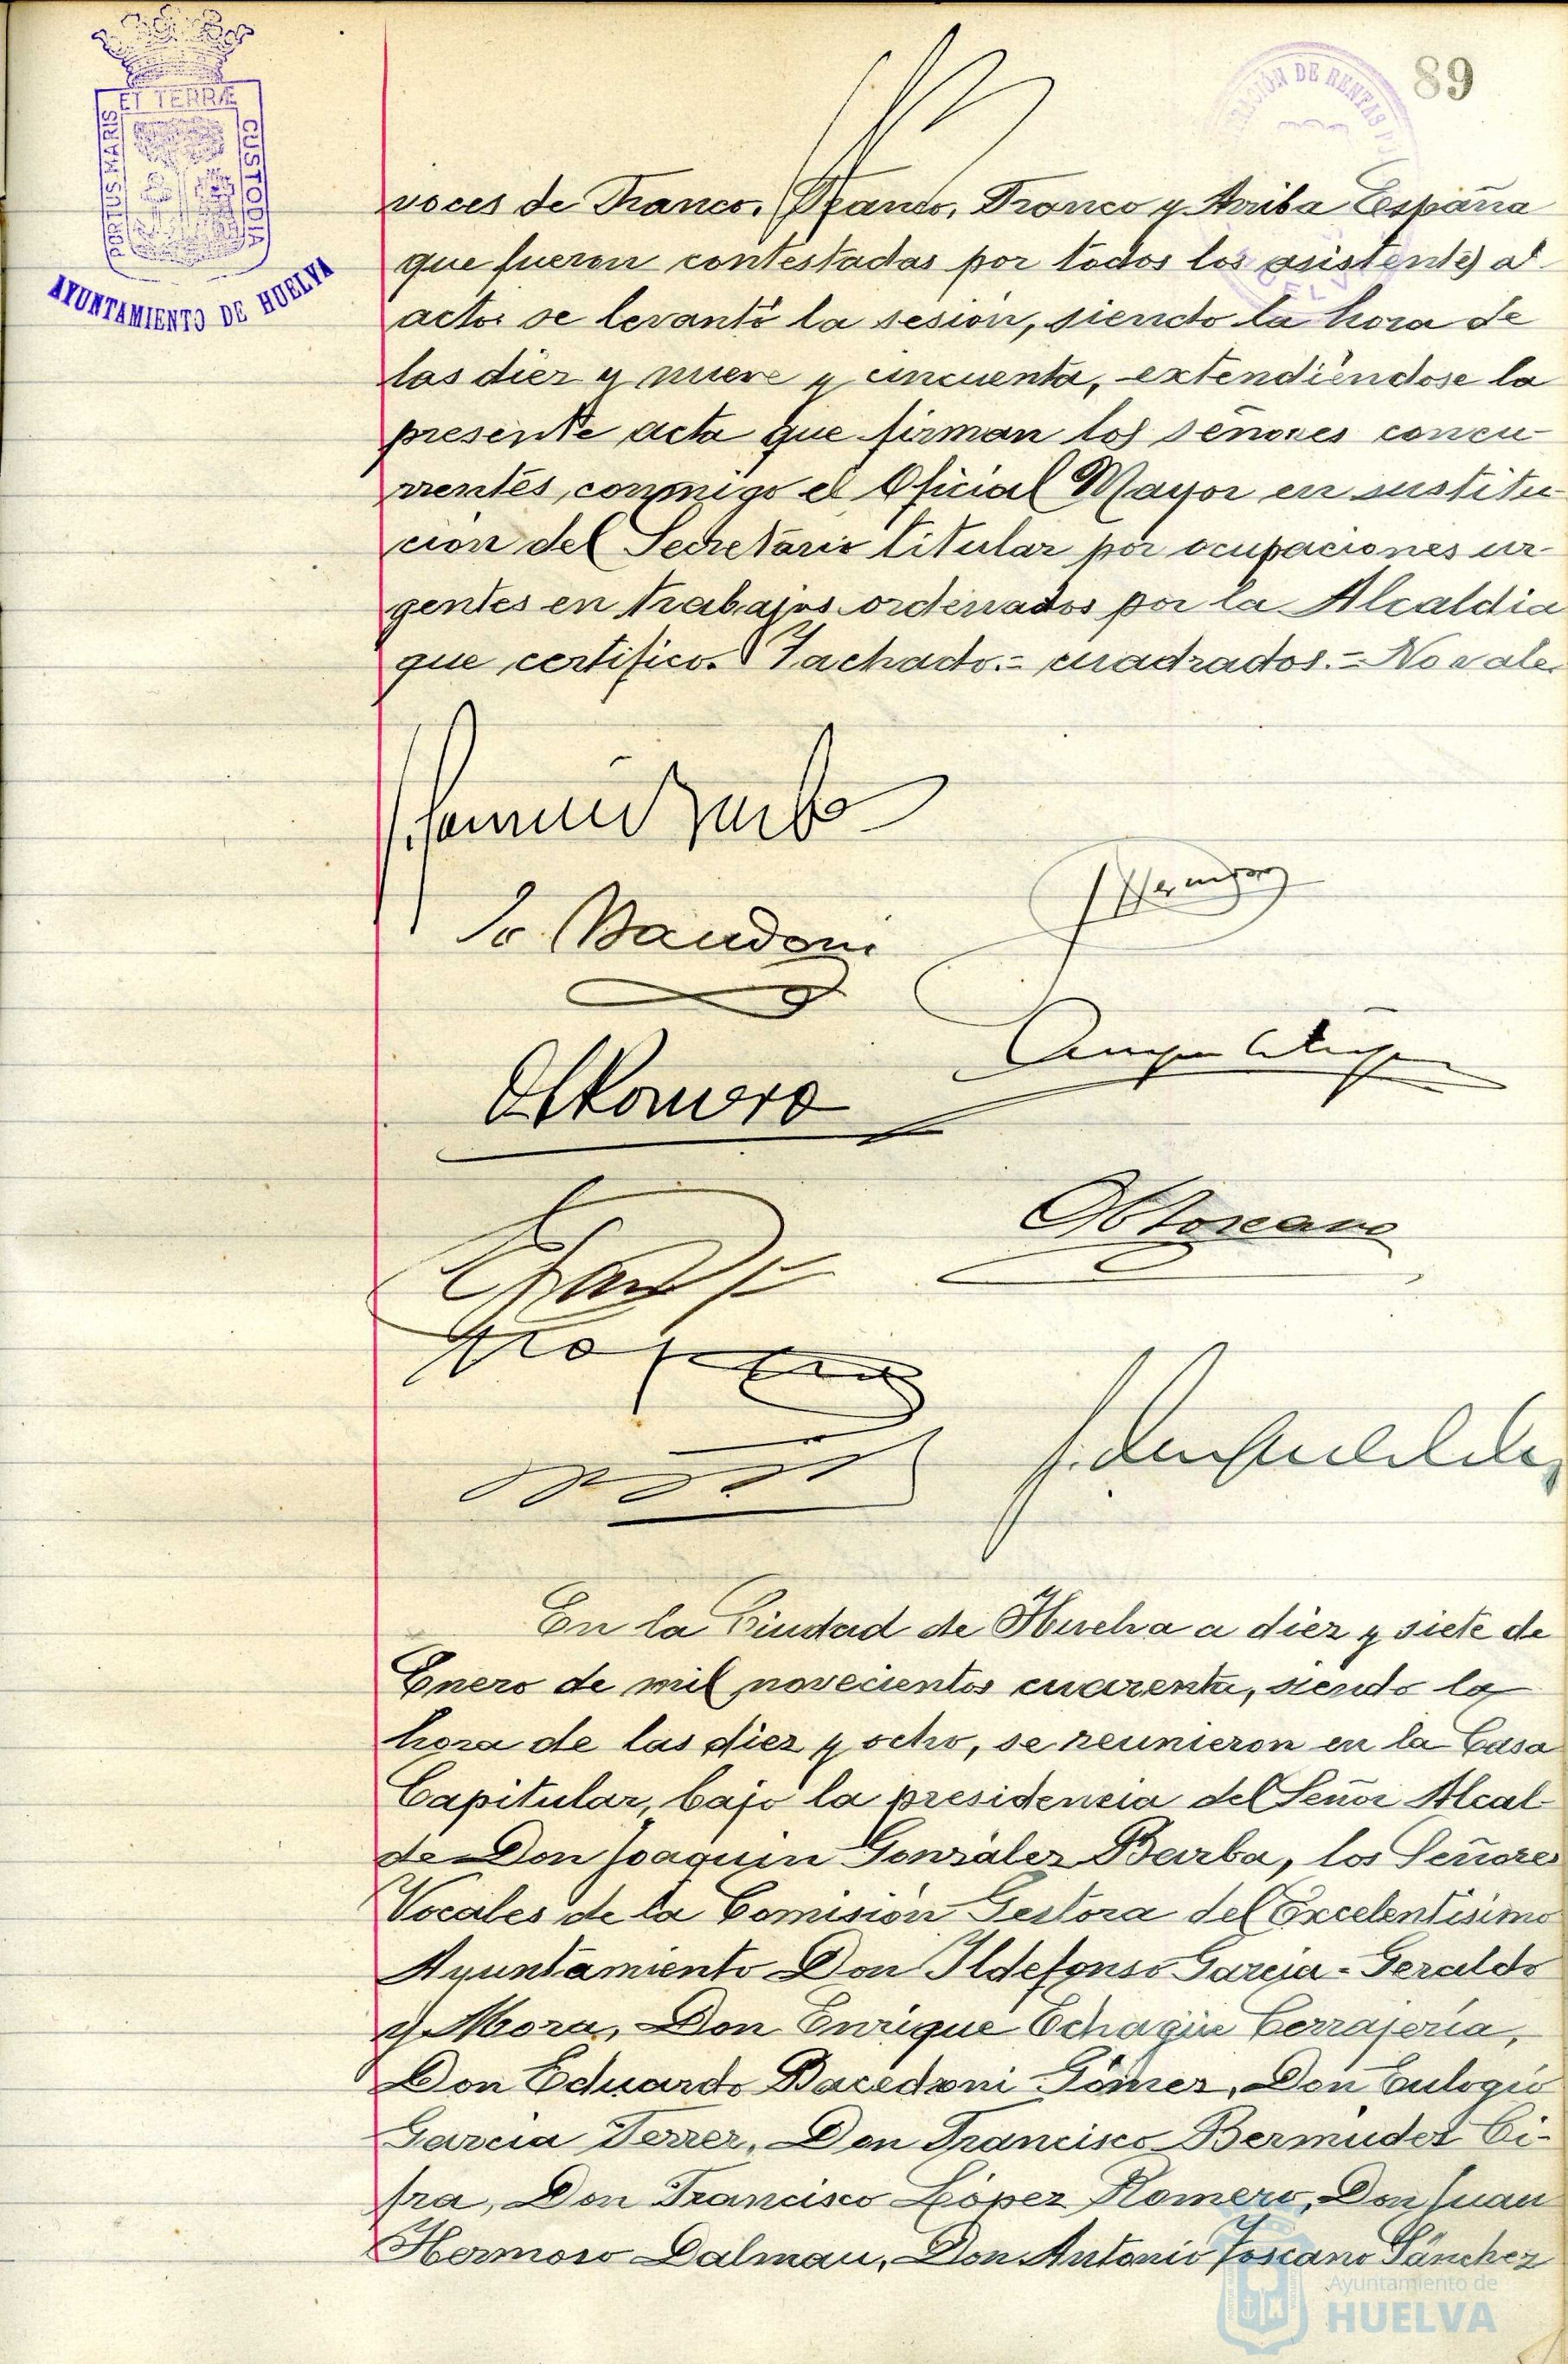 89
ET TERRÆ
PORTUS MARIS
CUSTODIA
AYUNTAMIENTO DE HUELVA
DE RENTAS
voces de Franco, Franco, Franco y Arriba España
que fueron contestadas por todos los asistentes al
acto se levantó la sesión, siendo la hora de
las diez y nueve y cincuenta, extendiéndose la
presente acta que firman los señores concu-
rrentes, conmigo el Oficial Mayor en sustitu-
cion del Secretario titular por ocupaciones ur-
gentes en trabajos ordenados por la Alcaldia
que certifico. Tachado.= cuadrados.= No vale
Romero
Toscano
En la Ciudad de Huelva a diez y siete de
Enero de mil novecientos cuarenta, siendo la
hora de las diez y ocho, se reunieron en la Casa
Capitular, bajo la presidencia del Señor Alcal-
de Don Joaquin González Barba, los Señores
Vocales de la Comisión Gestora del Excelentísimo
Ayuntamiento Don Ildefonso Garcia-Geraldo
y Mora, Don Enrique Echagüe Cerrajería,
Don Eduardo Bacedoni Gómez, Don Eulogio
Garcia Ferrer, Don Francisco Bermudez Ci-
fra, Don Francisco López Romero, Don Juan
Hermoso Dalmau, Don Antonio Toscano Sánchez
Ayuntamiento de
HUELVA